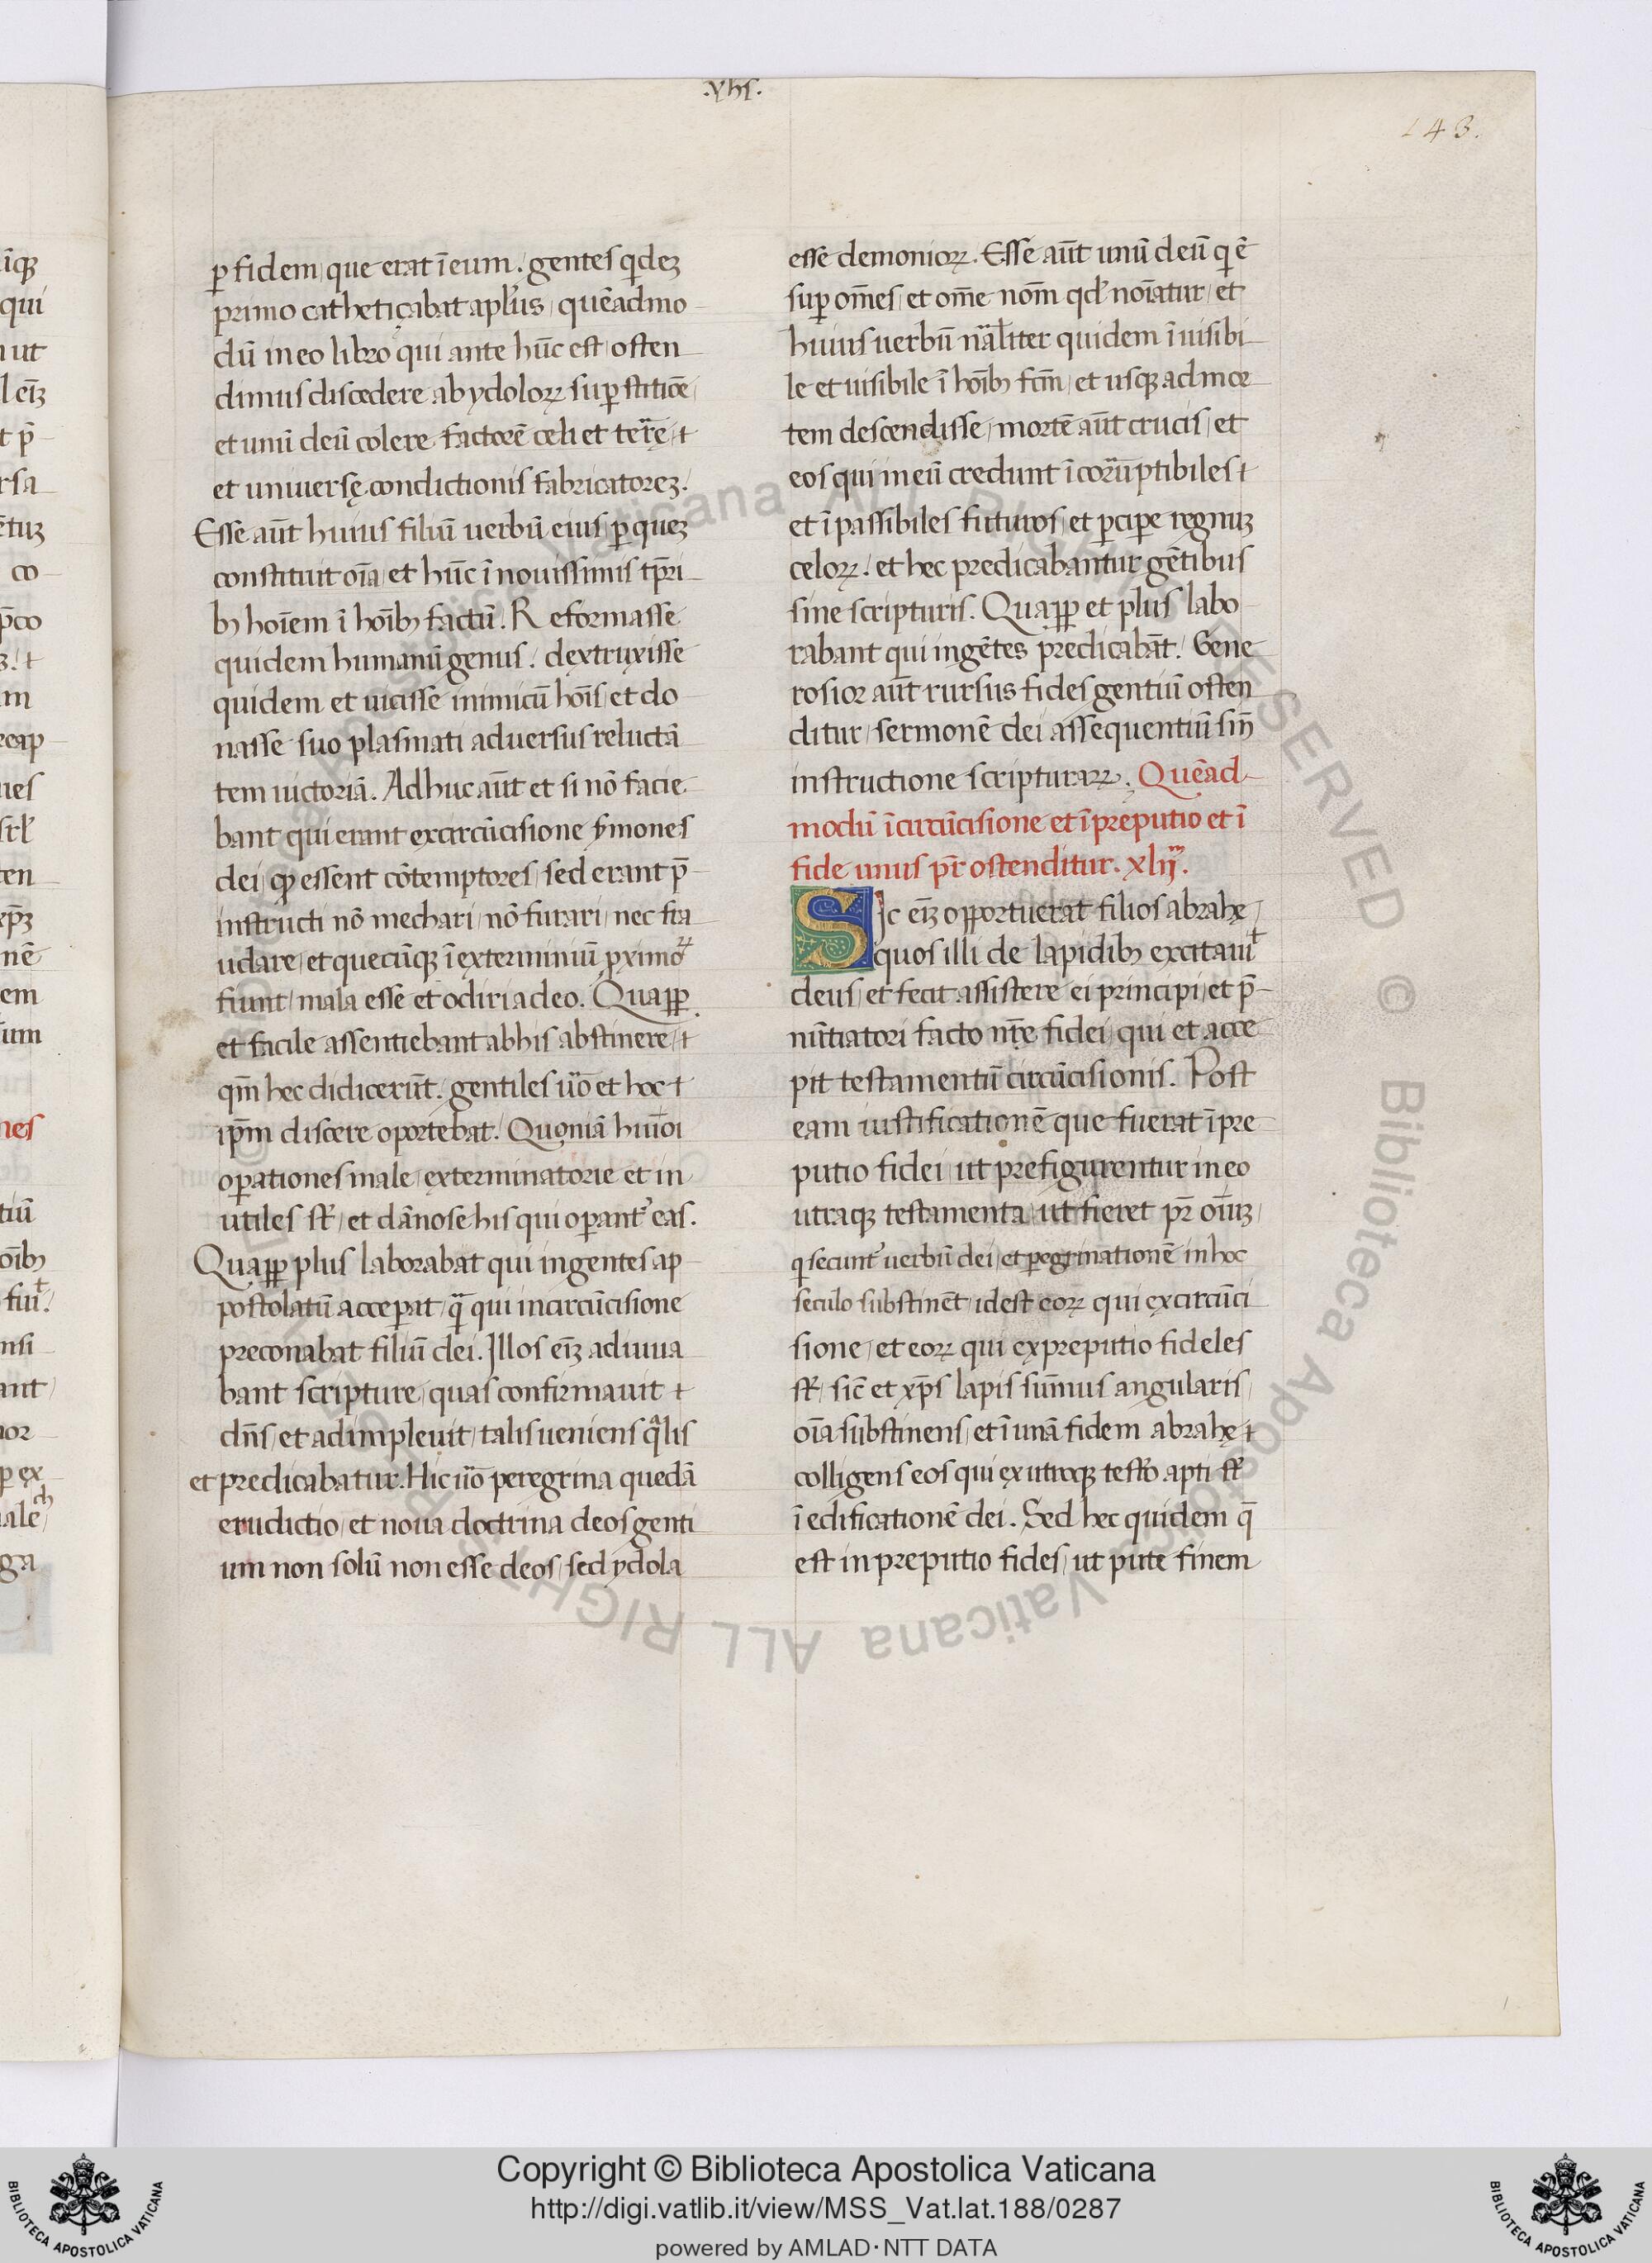 .yhs.
143.
ꝑ fidem, que erat ī eum. gentes qͥdeꝫ
primo cathetiçabat apl'us, quēadmo
dū in eo libro qui ante hūc est, osten
dimus discedere ab ydoloꝝ suꝑstitiōe,
et unū deū colere factorē celi et terr̄ę, ⁊
et uniuersę condictionis fabricatoreꝫ.
Esse aūt huius filiū uerbū eius ꝑ queꝫ
constituit oīa, et hūc ī nouissimis tp̄ri
bꝫ hoīem ī hoībꝫ factū. Reformasse
quidem humanū genus. dextruxisse
quidem et uicisse inimicū hoīs, et do
nasse suo plasmati aduersus reluctā
tem uictoriā. Adhuc aūt et si nō facie
bant qui erant ex circūcisione s̄mones
dei, ꝙ essent cōtemptores, sed erant p̄
instructi nō mechari, nō furari, nec fra
udare, et quecūqꝫ ī exterminiū ꝓximoꝝ
fiunt, mala esse et odiri a deo. Quaꝓꝑ
et facile assentiebant ab his abstinere, ⁊
qm̄ hec didicerūt. gentiles u̅o et hoc ⁊
ip̄m discere oportebat. Quoniā hui̅oi
oꝑationes male, exterminatorie et in
utiles st̄, et dānose his qui oꝑant᷑ eas.
Quaꝓꝑ plus laborabat qui in gentes ap
postolatū acceꝑat, qᷓ qui in circūcisione
preconabat filiū dei. Illos eīꝫ adiuua
bant scripture, quas confirmauit ⁊
dn̄s, et adimpleuit, talis ueniens qͣlis
et predicabatur. Hic u̅o peregrina quedā
erudictio, et noua doctrina deos genti
um non solū non esse deos, sed ydola
esse demonioꝝ. Esse aūt unū deū qͥ ē
suꝑ om̄es, et om̄e nom̄ qd᷑ noīatur, et
huius uerbū nāl'iter quidem īuisibi
le et uisibile ī hoībꝫ fc̄m, et usqꝫ ad mor
tem descendisse, mortē aūt crucis, et
eos qui in eū credunt ī corr̄uptibiles ⁊
et īpassibiles futuros, et ꝑcipe regnuꝫ
celoꝝ. et hec predicabantur gētibus
sine scripturis. Quaꝓꝑ et plus labo
rabant qui in gētes predicabāt. Gene
rosior aūt rursus fides gentiū osten
ditur, sermonē dei assequentiū sin̄
instructione scripturaꝝ. Quēad
modū ī circūcisione et ī preputio et ī
fide unus pr̄ ostenditur. xliijᵐ.
Sic eīꝫ opportuerat filios abrahę,
quos illi de lapidibꝫ excitauiᵗ
deus, et fecit assistere ei principi, et p̄
nūtiatori facto nr̄e fidei, qui et acce
pit testamentū circūcisionis. Post
eam iustificationē que fuerat ī pre
putio fidei, ut prefigurentur in eo
utraqꝫ testamenta, ut fieret pr̄ oīuꝫ,
qͥ secunt᷑ uerbū dei, et ꝑegrinationē in hoc
seculo substinēt, id est eoꝝ qui ex circūci
sione, et eoꝝ qui ex preputio fideles
st̄, sic̄ et xp̄s lapis sūmus angularis,
oīa substinens, et ī unā fidem abrahę ⁊
colligens eos qui ex utroqꝫ test̄o apti st̄
ī edificationē dei. Sed hec quidem q̄
est in preputio fides, ut pute finem
Copyright © Biblioteca Apostolica Vaticana
http://digi.vatlib.it/view/MSS_Vat.lat.188/0287
powered by AMLAD·NTT DATA
BIBLIOTECA APOSTOLICA VATICANA
BIBLIOTECA APOSTOLICA VATICANA